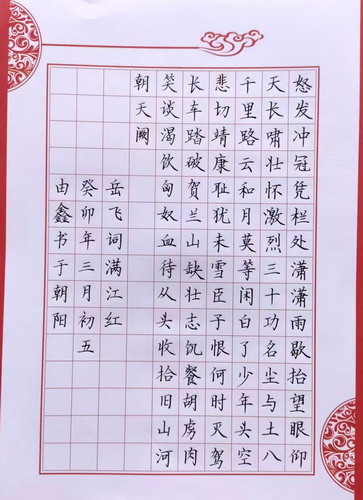 怒发冲冠凭栏处潇潇雨歇抬望眼仰
天长啸壮怀激烈三十功名尘与土八
千里路云和月莫等闲白了少年头空
悲切靖康耻犹未雪臣子恨何时灭驾
长车踏破贺兰山缺壮志饥餐胡虏肉
笑谈渴饮匈奴血待从头收拾旧山河
朝天阙
岳飞词满江红
癸卯年三月初五
由鑫书于朝阳